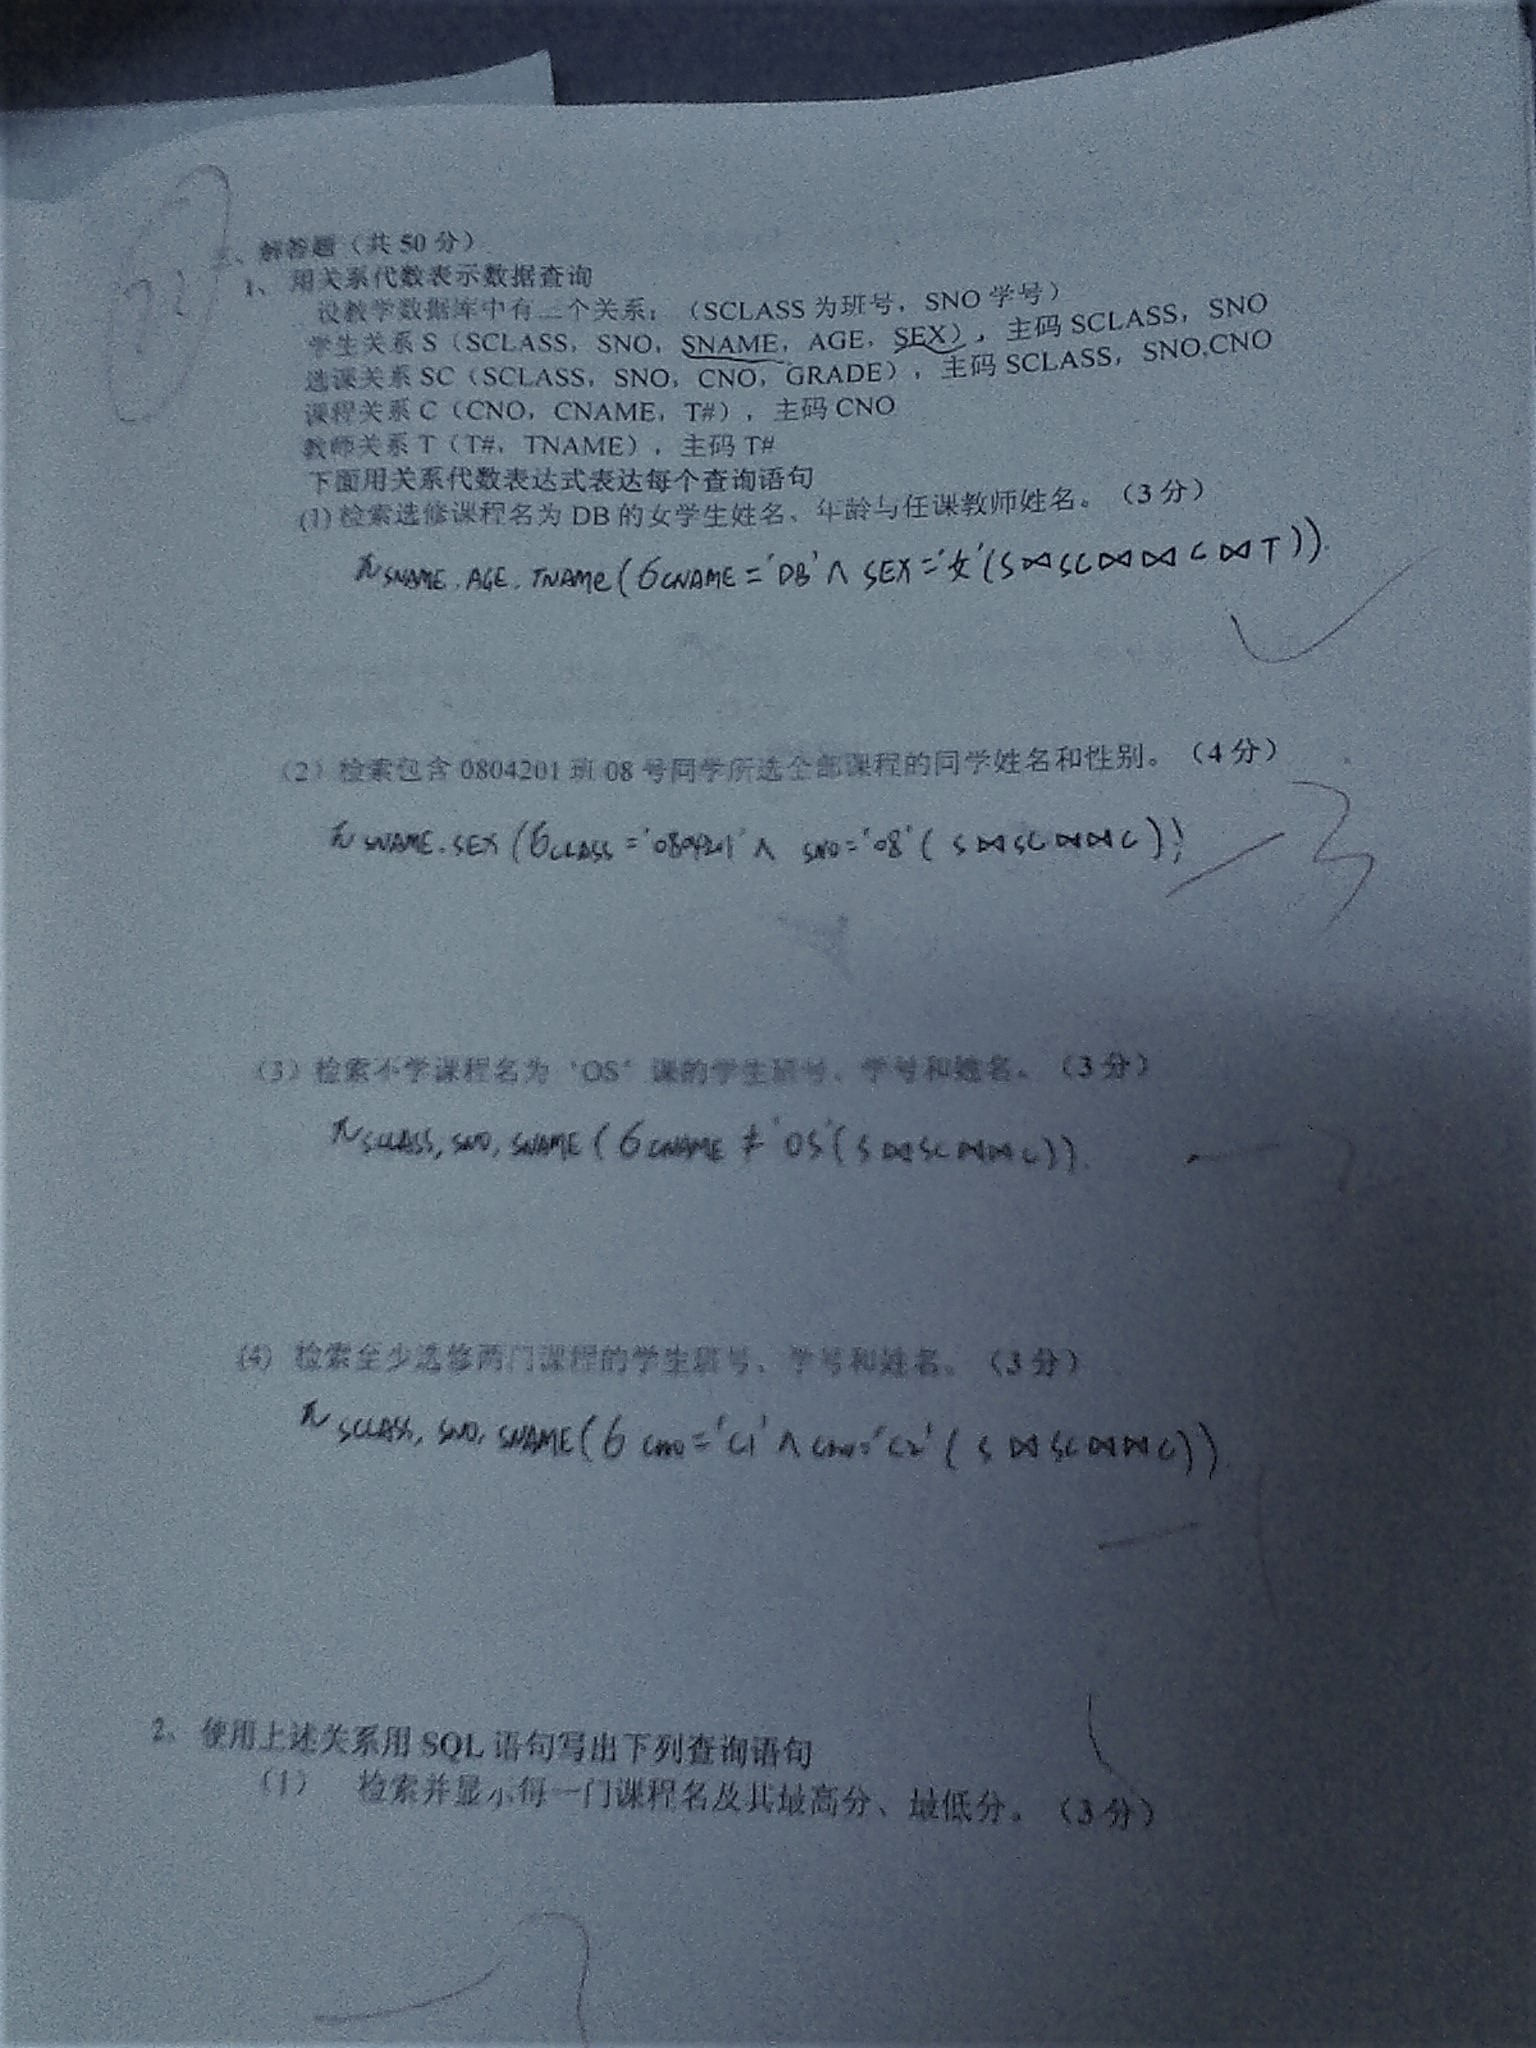 、解答题（共50分）
1、用关系代数表示数据查询
设教学数据库中有三个关系：（SCLASS为班号，SNO学号）
学生关系S（SCLASS，SNO，SNAME，AGE，SEX），主码SCLASS，SNO
选课关系SC（SCLASS，SNO，CNO，GRADE），主码SCLASS，SNO,CNO
课程关系C（CNO，CNAME，T#），主码CNO
教师关系T（T#，TNAME），主码T#
下面用关系代数表达式表达每个查询语句
(1)检索选修课程名为DB的女学生姓名、年龄与任课教师姓名。（3分）
π SNAME.AGE.TNAMe(σ CNAME='DB'∧SEX='女'(S⋈SC⋈⋈C⋈T)).
（2）检索包含0804201班08号同学所选全部课程的同学姓名和性别。（4分）
π SNAME.SEX(σ CLASS='0804201'∧ SNO='08'(S⋈SC⋈⋈C))
-3
（3）检索不学课程名为‘OS’课的学生班号、学号和姓名。（3分）
π SCLASS, SNO, SNAME(σ CNAME≠'OS'(S⋈SC⋈⋈C)).
(4) 检索至少选修两门课程的学生班号、学号和姓名。（3分）
π SCLASS, SNO, SNAME(σ CNO='C1'∧CNO='C2'(S⋈SC⋈⋈C)).
2、使用上述关系用SQL语句写出下列查询语句
（1） 检索并显示每一门课程名及其最高分、最低分。（3分）